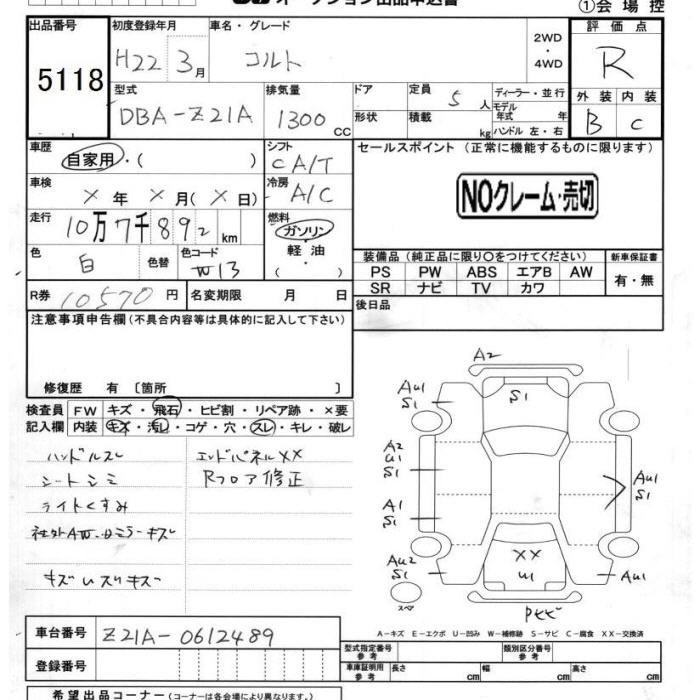 オークション出品申込書
①会場控
出品番号
5118
初度登録年月
H22 3月
車名・グレード
コルト
2WD
・
4WD
評価点
R
外装 内装
B C
型式
DBA-Z21A
排気量
1300 CC
ドア
形状
定員
5 人
積載
kg
ディーラー・並行
モデル
年式 年
ハンドル 左・右
車歴
自家用・( )
シフト
CA/T
車検
× 年 × 月( × 日)
冷房
A/C
走行
10万7千892 km
燃料
ガソリン・
軽油・
( )
色
白
色替
色コード
W13
R券
10570 円
名変期限 月 日
セールスポイント (正常に機能するものに限ります)
NOクレーム・売切
装備品(純正品に限り〇をつけてください)
新車保証書
PS PW ABS エアB AW
有・無
SR ナビ TV カワ
後日品
注意事項申告欄(不具合内容等は具体的に記入して下さい)
修復歴 有 〔箇所 〕
検査員
記入欄
FW キズ・飛石・ヒビ割・リペア跡・×要
内装 キズ・汚レ・コゲ・穴・スレ・キレ・破レ
ハンドルスレ
シートシミ
ライトくすみ
社外AW・Dミラーキズ
キズUスリキズ
エンドパネルXX
Rフロア修正
A2
AU1
S1
S1
A2
U1
S1
A1
S1
AU1
S1
AU2
S1
XX
W1
AU1
スペア
A-キズ E-エクボ U-凹み W-補修跡 S-サビ C-腐食 XX-交換済
車台番号
Z21A-0612489
登録番号
型式指定番号
参考
類別区分番号
参考
車庫証明用
参考
長さ cm
幅 cm
高さ cm
希望出品コーナー(コーナーは各会場により異なります)